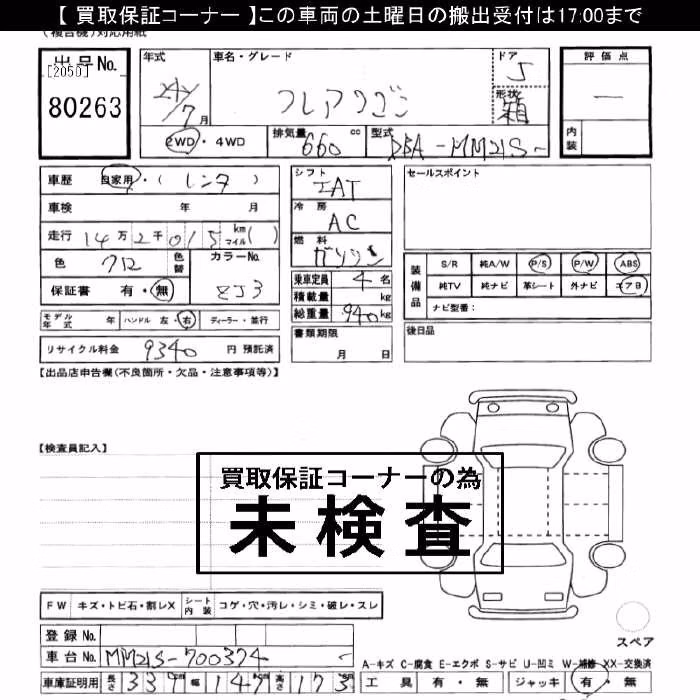 【 買取保証コーナー 】この車両の土曜日の搬出受付は17:00まで
(複合機)対応用紙
出品No. [2050] 80263
年式 24年 7月
車名・グレード フレアワゴン
ドア 5
形状 箱
評価点 —
内装
2WD・4WD
排気量 660 cc
型式 DBA-MM21S
車歴 自家用・(レンタ)
車検 年 月
走行 14万2千015 km マイル( )
色 クロ
色替
カラーNo. ZJ3
保証書 有・無
シフト IAT
冷房 AC
燃料 ガソリン
乗車定員 4名
積載量 kg
総重量 940kg
セールスポイント
装備品
S/R 純A/W P/S P/W ABS
純TV 純ナビ 革シート 外ナビ エアB
ナビ型番:
モデル年式 年 ハンドル 左・右 ディーラー・並行
書類期限 月 日
後日品
リサイクル料金 9340 円 預託済
【出品店申告欄(不良箇所・欠品・注意事項等)】
【検査員記入】
買取保証コーナーの為
未検査
FW キズ・トビ石・割レX シート内装 コゲ・穴・汚レ・シミ・破レ・スレ
スペア
登録No.
車台No. MM21S-700374
A-キズ C-腐食 E-エクボ S-サビ U-凹ミ W-補修 XX-交換済
車庫証明用 長さ 339cm 幅 147 高さ 173
工具 有・無 ジャッキ 有・無